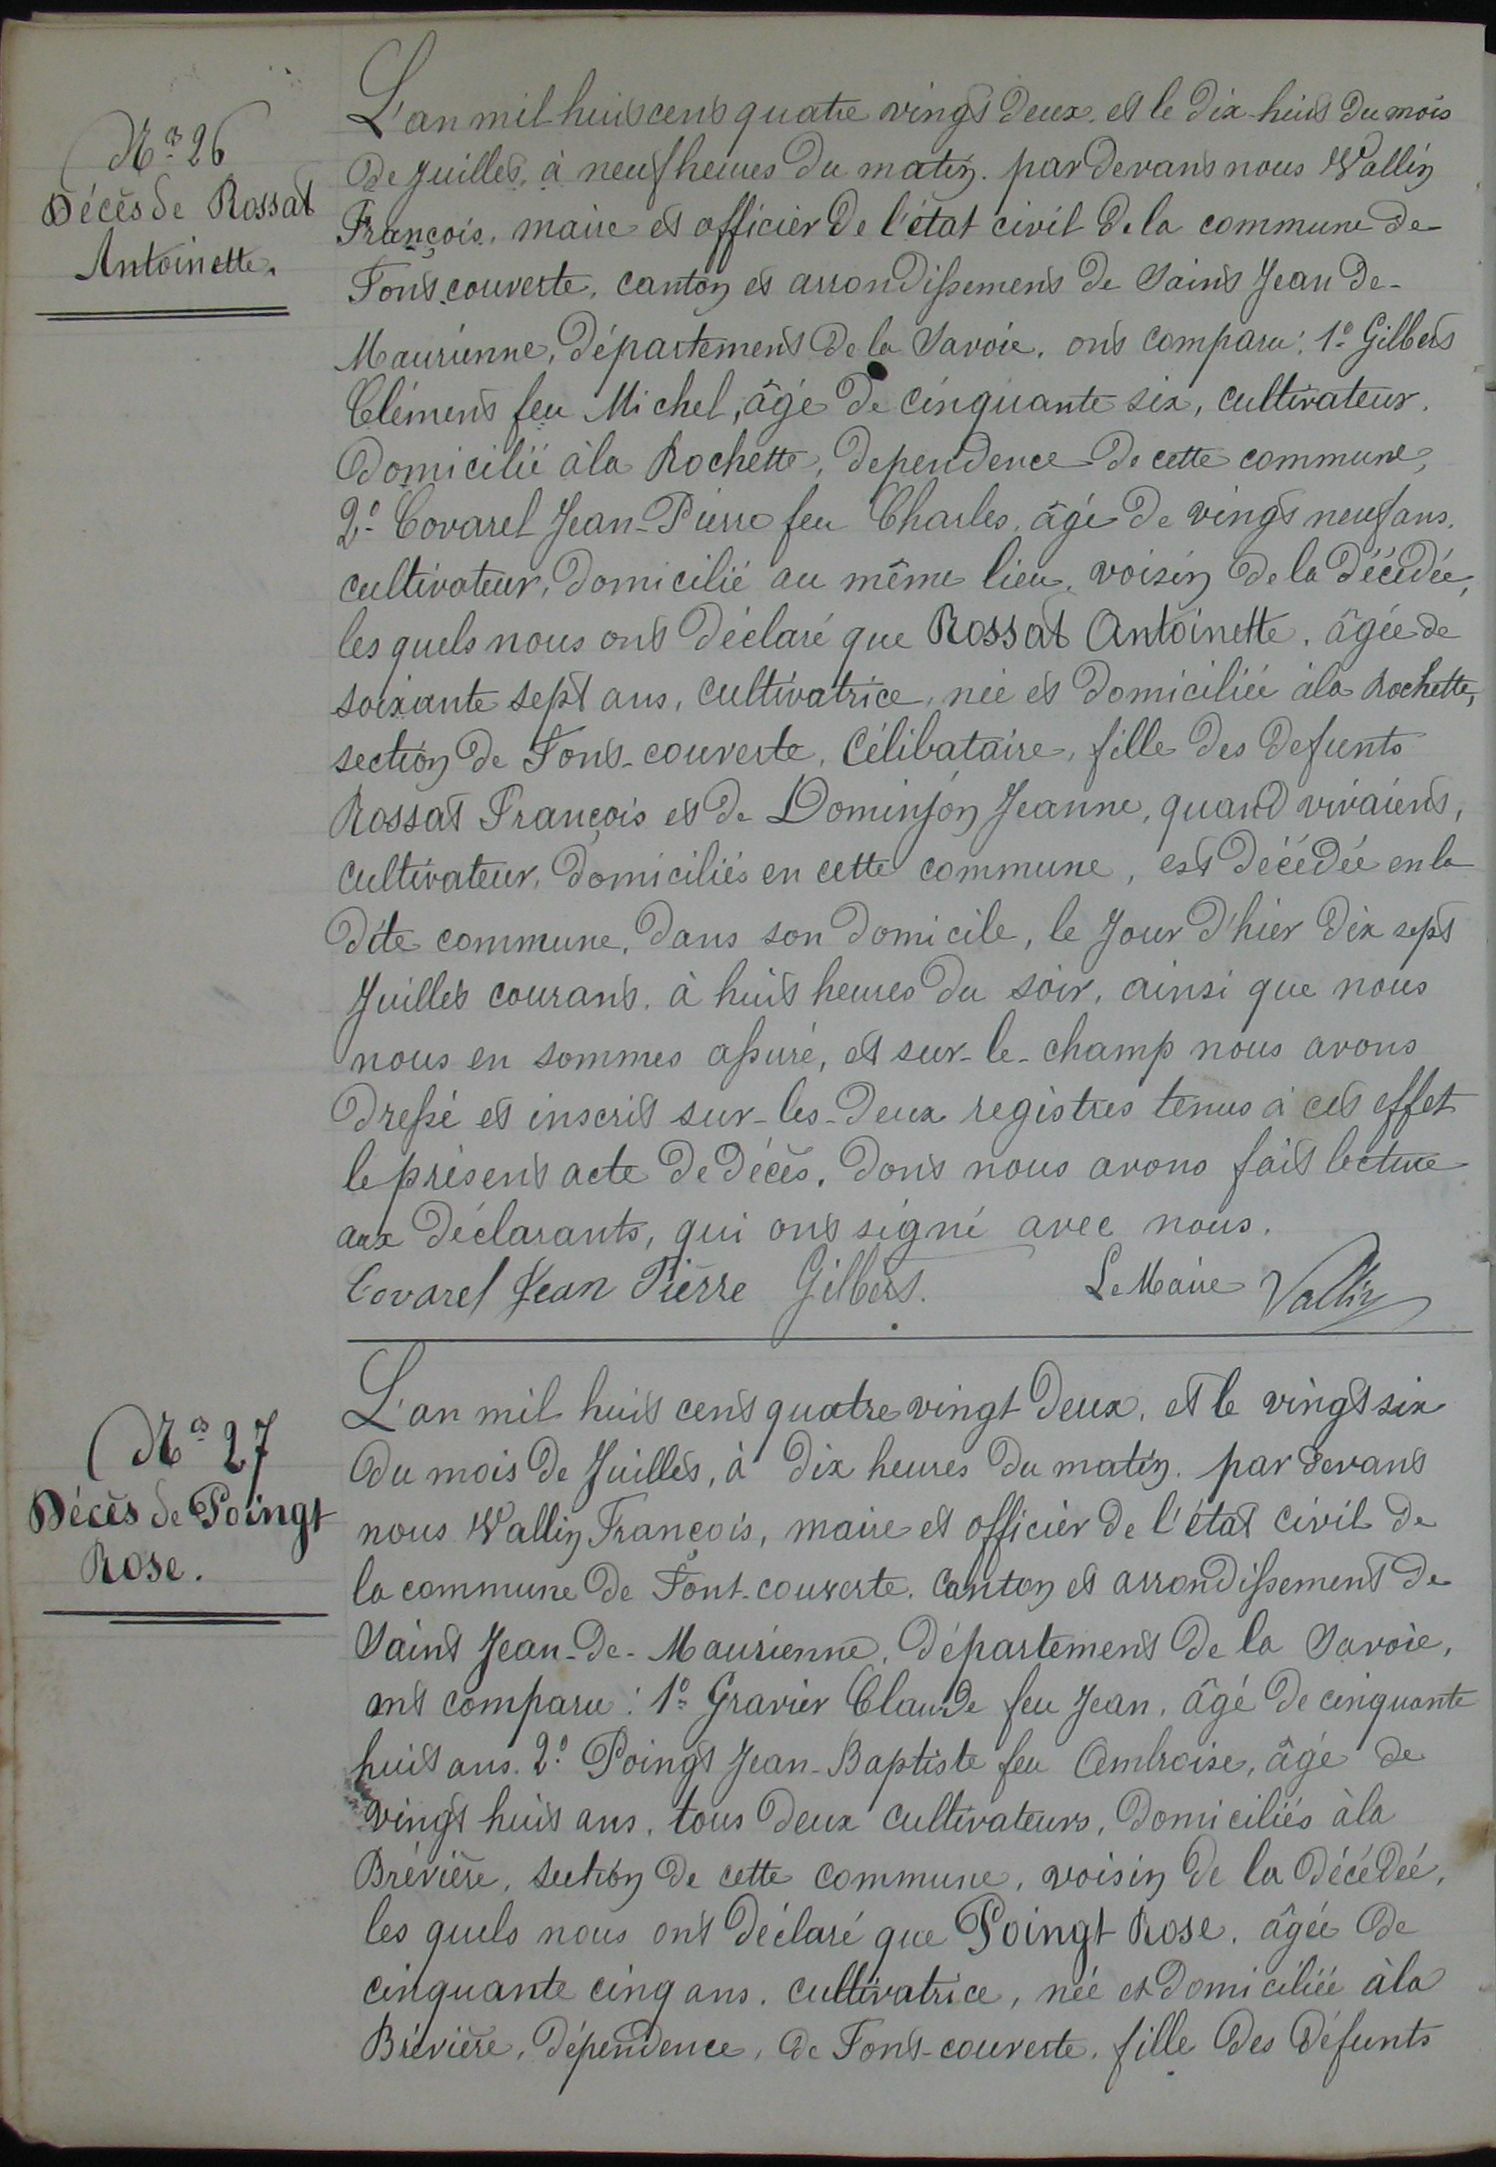 N° 26
Décès de Rossat
Antoinette.
L'an mil huit cent quatre vingt deux, et le dix-huit du mois
de Juillet, à neuf heures du matin. par devant nous Vallin
François, maire et officier de l'état civil de la commune de
Font couverte, canton et arrondissement de Saint Jean de-
Maurienne, département de la Savoie, ont comparu: 1° Gilbert
Clément feu Michel, âgé de cinquante six, cultivateur,
domicilié à la Rochette, dependence de cette commune,
2° Covarel Jean-Pierre feu Charles, âgé de vingt neuf ans,
cultivateur, domicilié au même lieu, voisin de la décédée,
les quels nous ont déclaré que Rossat Antoinette, âgée de
soixante sept ans, cultivatrice, née et domiciliée à la Rochette,
section de Font-couverte, Célibataire, fille des defunts
Rossat François et de Dominjon Jeanne, quand vivaient,
cultivateur, domiciliés en cette commune, est décédée en la
dite commune, dans son domicile, le Jour d'hier dix sept
Juillet courant, à huit heures du soir, ainsi que nous
nous en sommes assuré, et sur-le-champ nous avons
dressé et inscrit sur-les-deux registres tenus à cet effet
le présent acte de décès, dont nous avons fait lecture
aux déclarants, qui ont signé avec nous.
Covarel Jean Pierre Gilbert. Le Maire Vallin
N° 27
Décès de Poingt
Rose.
L'an mil huit cent quatre vingt deux, et le vingt six
du mois de Juillet, à dix heures du matin. par devant
nous Vallin François, maire et officier de l'état civil de
la commune de Font-couverte. Canton et arrondissement de
Saint Jean-de-Maurienne, département de la Savoie,
ont comparu: 1° Gravier Claude feu Jean, âgé de cinquante
huit ans. 2° Poingt Jean-Baptiste feu Ambroise, âgé de
vingt huit ans, tous deux cultivateurs, domiciliés à la
Brévière, section de cette commune, voisin de la décédeé,
les quels nous ont déclaré que Poingt Rose, âgée de
cinquante cinq ans, cultivatrice, née et domiciliée à la
Brévière, dépendence, de Font-couverte, fille des défunts